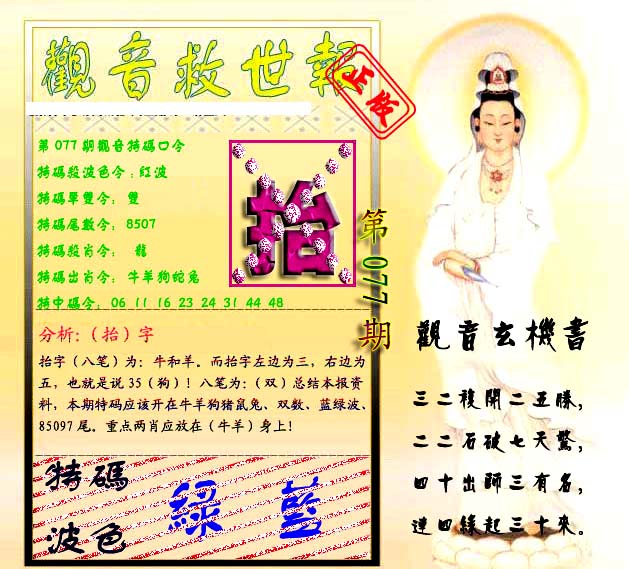 觀音救世報
正版
第077期觀音特碼口令
特碼殺波色令:紅波
特碼單雙令: 雙
特碼尾數令: 8507
特碼殺肖令: 龍
特碼出肖令: 牛羊狗蛇兔
特中碼令: 06 11 16 23 24 31 44 48
抬
第077期
分析:(抬)字
抬字(八笔)为:牛和羊。而抬字左边为三,右边为
五,也就是说35(狗)!八笔为:(双)总结本报资
料,本期特码应该开在牛羊狗猪鼠兔、双数、蓝绿波、
85097尾。重点两肖应放在(牛羊)身上!
特碼
波色
綠 藍
觀音玄機書
三二複開二五勝,
二二石破七天驚,
四十出師三有名,
連四緣起三十來。